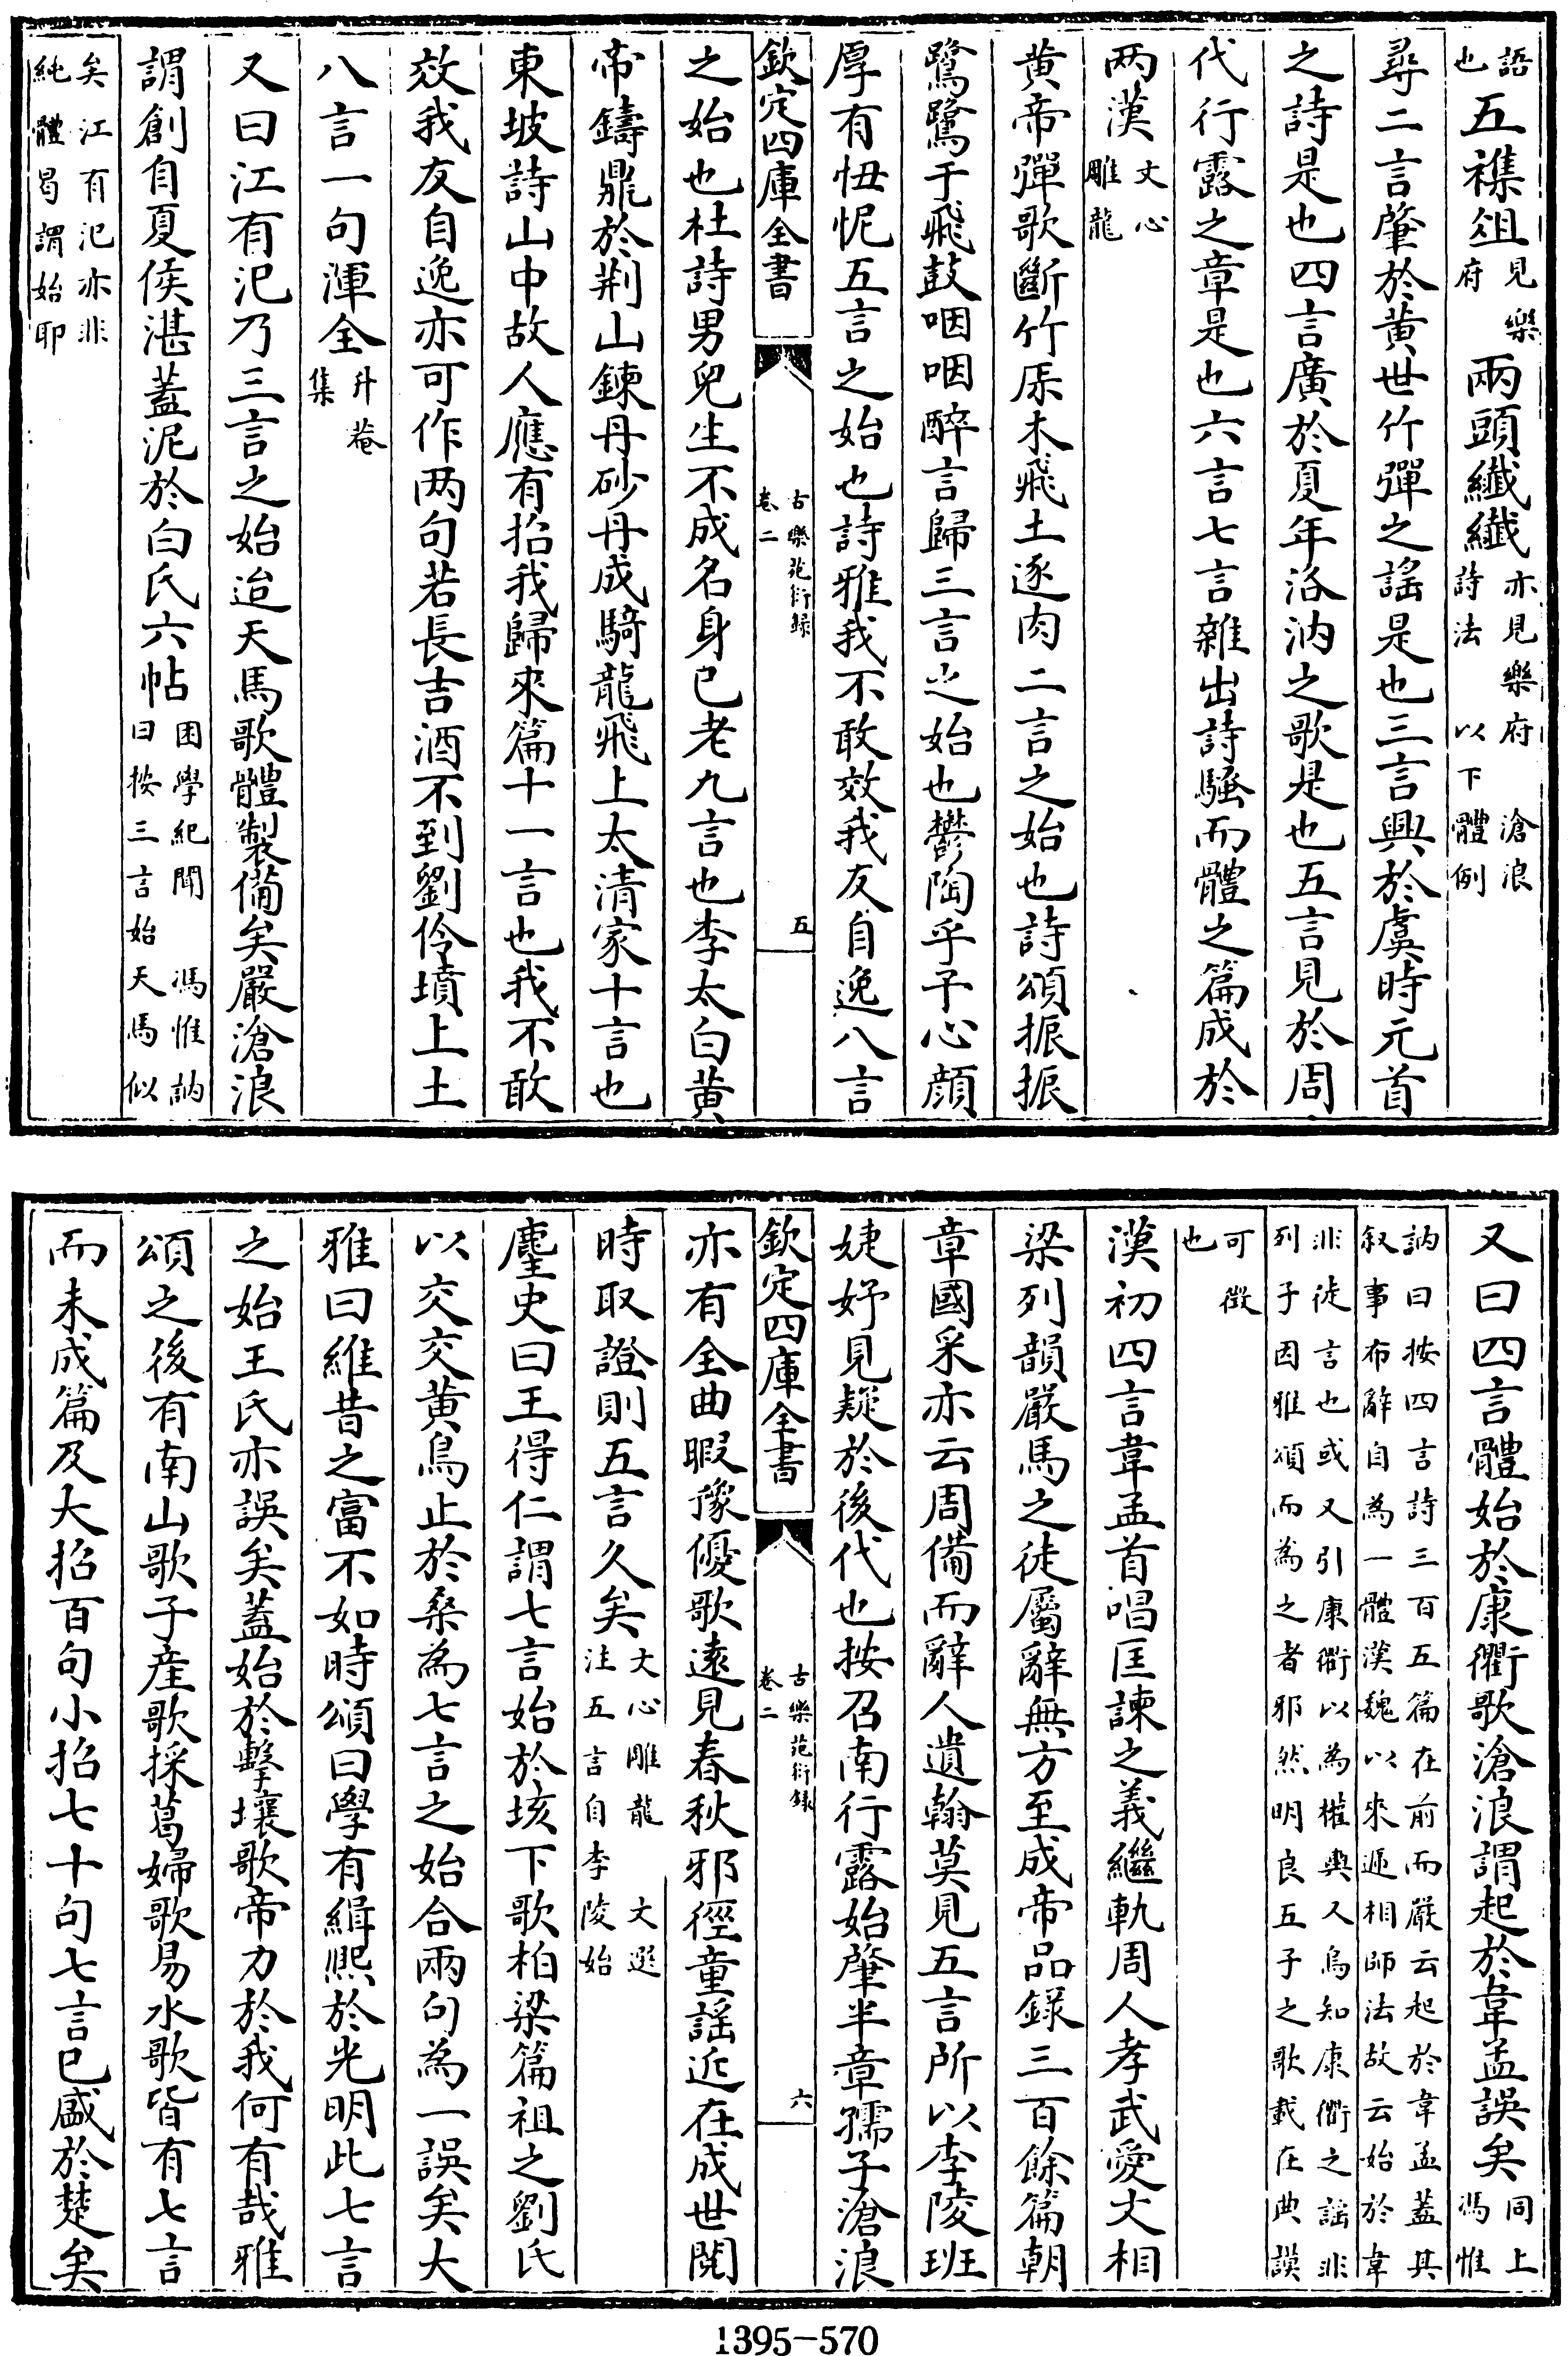 語也五襍俎見樂府兩頭纖纖亦見樂府詩法　滄浪以下體例
尋二言肇於黃世竹彈之謠是也三言興於虞時元首
之詩是也四言廣於夏年洛汭之歌是也五言見於周
代行露之章是也六言七言雜出詩騷而體之篇成於
兩漢文心雕龍
黃帝彈歌斷竹屬木飛土逐肉二言之始也詩頌振振
鷺鷺于飛鼓咽咽醉言歸三言之始也鬱陶乎予心顏
厚有忸怩五言之始也詩雅我不敢效我友自逸八言
欽定四庫全書　古樂苑衍錄卷二　五
之始也杜詩男兒生不成名身已老九言也李太白黃
帝鑄鼎於荆山鍊丹砂丹成騎龍飛上太清家十言也
東坡詩山中故人應有招我歸來篇十一言也我不敢
效我友自逸亦可作两句若長吉酒不到劉伶墳上土
八言一句渾全升菴集
又曰江有汜乃三言之始迨天馬歌體製備矣嚴滄浪
謂創自夏侯湛蓋泥於白氏六帖困學紀聞　馮惟訥曰按三言始天馬似
矣江有汜亦非純體曷謂始耶
又曰四言體始於康衢歌滄浪謂起於韋孟誤矣同上馮惟
訥曰按四言詩三百五篇在前而嚴云起於韋孟蓋其叙事布辭自為一體漢魏以來遞相師法故云始於韋
非徒言也或又引康衢以為權輿人烏知康衢之謡非列子因雅頌而為之者邪然明良五子之歌載在典謨
可徴也
漢初四言韋孟首唱匡諫之義繼軌周人孝武愛文相
梁列韻嚴馬之徒屬辭無方至成帝品錄三百餘篇朝
章國采亦云周備而辭人遺翰莫見五言所以李陵班
婕妤見疑於後代也按召南行露始肇半章孺子滄浪
欽定四庫全書　古樂苑衍錄卷二　六
亦有全曲暇豫優歌遠見春秋邪徑童謠近在成世閱
時取證則五言久矣文心雕龍　文選注五言自李陵始
麈史曰王得仁謂七言始於垓下歌柏梁篇祖之劉氏
以交交黃鳥止於桑為七言之始合兩句為一誤矣大
雅曰維昔之富不如時頌曰學有緝熙於光明此七言
之始王氏亦誤矣蓋始於擊壤歌帝力於我何有哉雅
頌之後有南山歌子産歌採葛婦歌易水歌皆有七言
而未成篇及大招百句小招七十句七言已盛於楚矣
1395-570